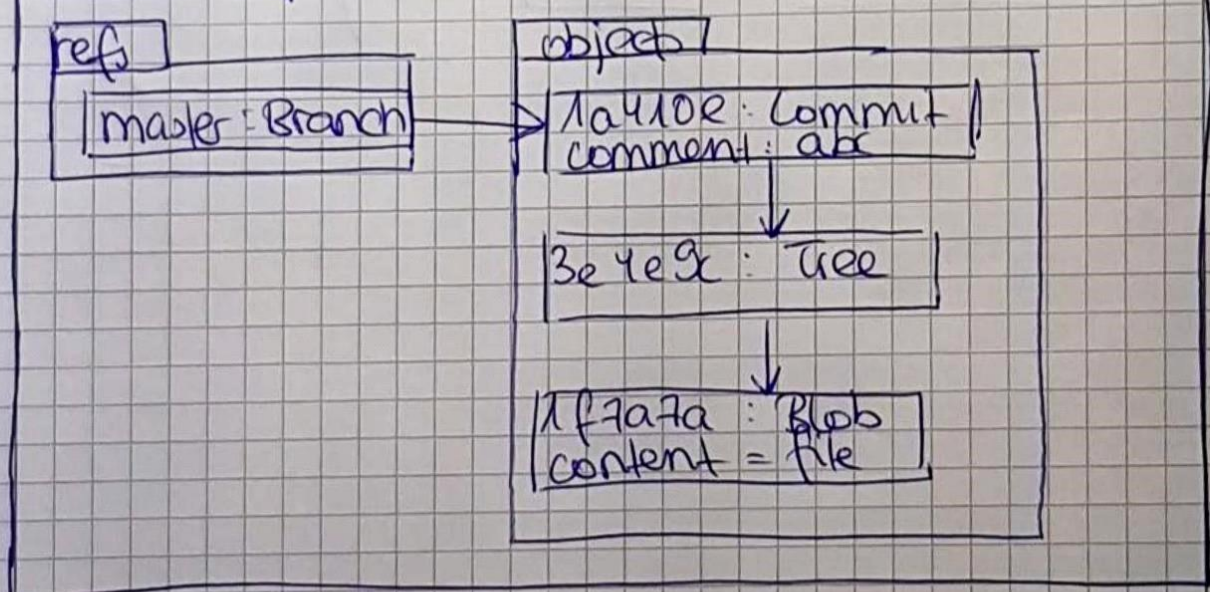 refs
master : Branch
objects
1a410e : Commit
comment : abc
3e4e9c : Tree
1f7a7a : Blob
content = file